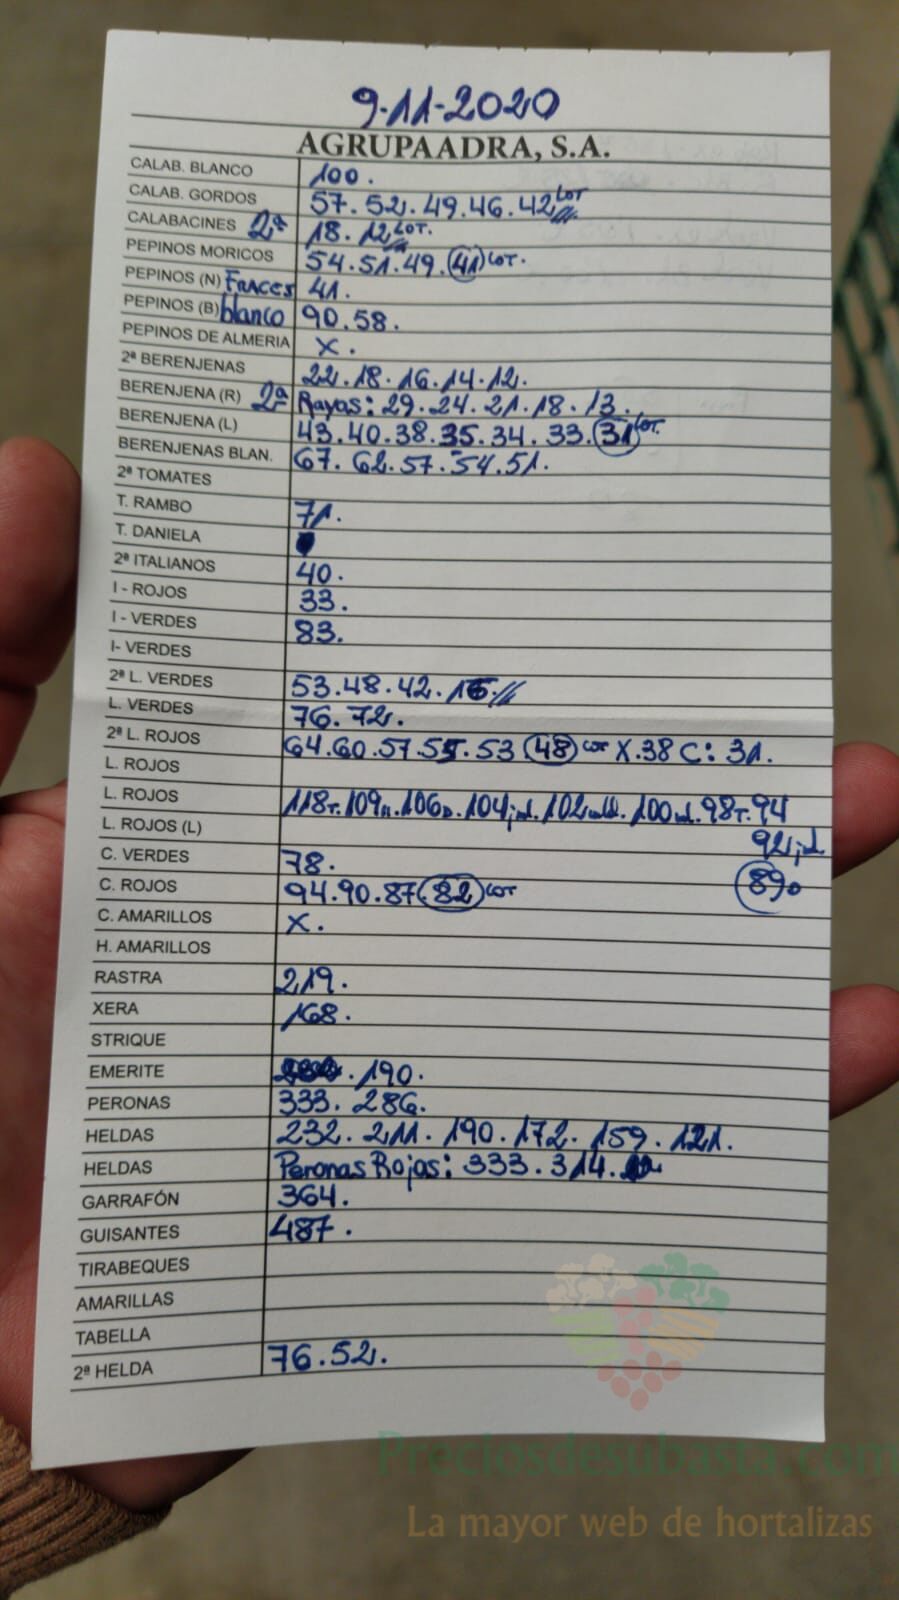 9-11-2020
AGRUPAADRA, S.A.
CALAB. BLANCO 100.
CALAB. GORDOS 57. 52. 49. 46. 42 LOT
CALABACINES 2ª 18. 12 LOT.
PEPINOS MORICOS 54. 51. 49. 41 LOT.
PEPINOS (N) Frnces 41.
PEPINOS (B) blanco 90. 58.
PEPINOS DE ALMERIA X.
2ª BERENJENAS 22. 18. 16. 14. 12.
BERENJENA (R) 2ª Rayas: 29. 24. 21. 18. 13.
BERENJENA (L) 43. 40. 38. 35. 34. 33. 31 LOT.
BERENJENAS BLAN. 67. 62. 57. 54. 51.
2ª TOMATES
T. RAMBO 71.
T. DANIELA
2ª ITALIANOS 40.
I - ROJOS 33.
I - VERDES 83.
I- VERDES
2ª L. VERDES 53. 48. 42.
L. VERDES 76. 72.
2ª L. ROJOS 64. 60. 57. 55. 53 48 LOT X. 38 C: 31.
L. ROJOS
L. ROJOS 118T. 109 . 106 . 104 . 102 . 100 . 98T. 94
L. ROJOS (L) 92
C. VERDES 78.
C. ROJOS 94. 90. 87 82 LOT 89
C. AMARILLOS X.
H. AMARILLOS
RASTRA 219.
XERA 168.
STRIQUE
EMERITE . 190.
PERONAS 333. 286.
HELDAS 232. 211. 190. 172. 159. 121.
HELDAS Peronas Rojas: 333. 314.
GARRAFÓN 364.
GUISANTES 487.
TIRABEQUES
AMARILLAS
TABELLA
2ª HELDA 76. 52.
Preciosdesubasta.com
La mayor web de hortalizas